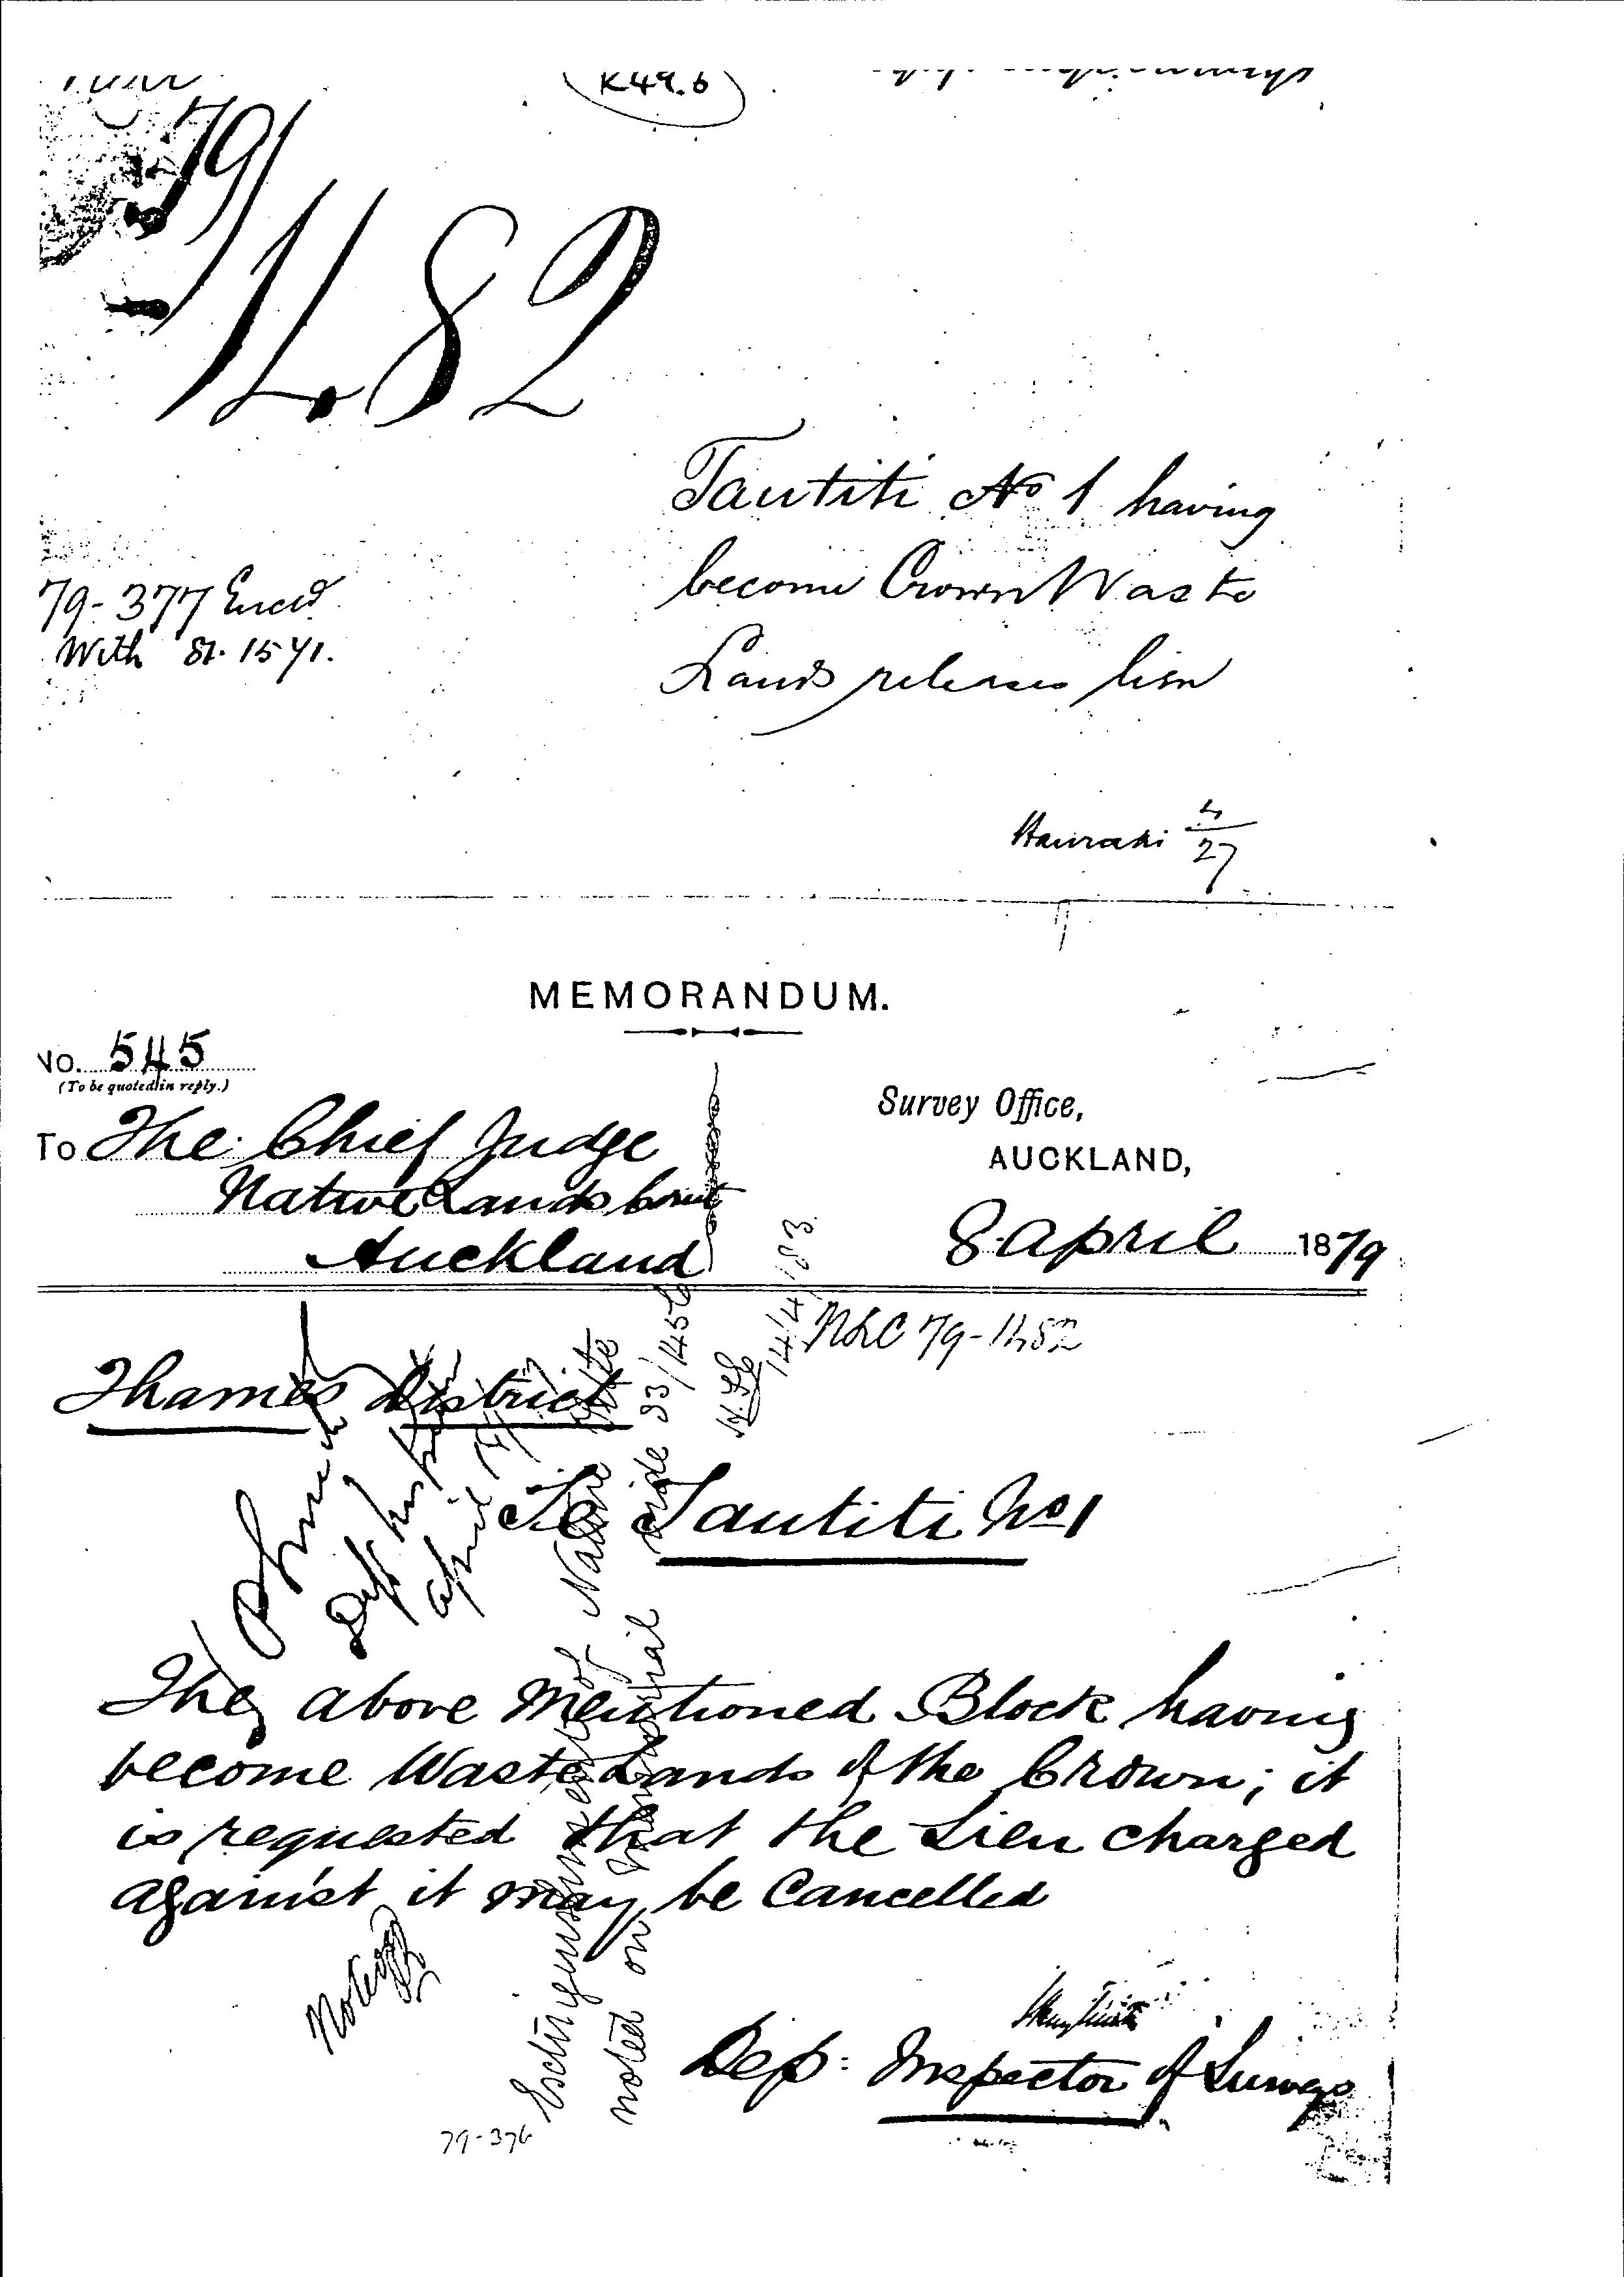 K49.6
79/
1482
Tautiti No 1 having
become Crown Waste
Lands releases lien
79-377 Encd
With 81.1541.
Hauraki 4/27
MEMORANDUM.
No. 545
(To be quoted in reply.)
Survey Office,
To The Chief Judge
AUCKLAND,
Native Lands Court
Auckland
8 April 1879
NLC 79-1482
Thames District
Te Tautiti No 1
The above mentioned Block having
become Waste Lands of the Crown; it
is requested that the Lien charged
against it may be Cancelled
Dep: Inspector of Surveys
Noted
Extinguishment of Native Title
noted on Memorial vide 83/1456
14/4/83
April
79-376